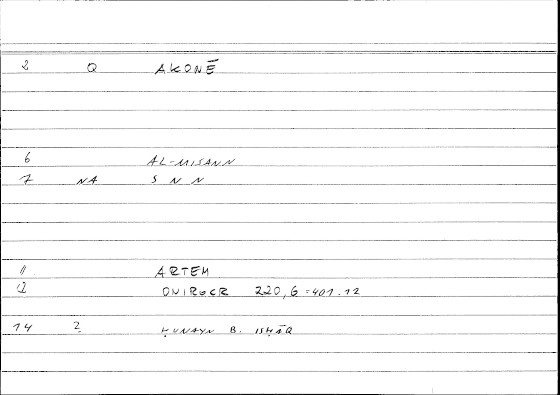 2 Q AKONĒ
6 AL-MISANN
7 NA S N N
11 ARTEM
12 ONIROCR 220,6=401.12
14 2 ḤUNAYN B. ISḤĀQ